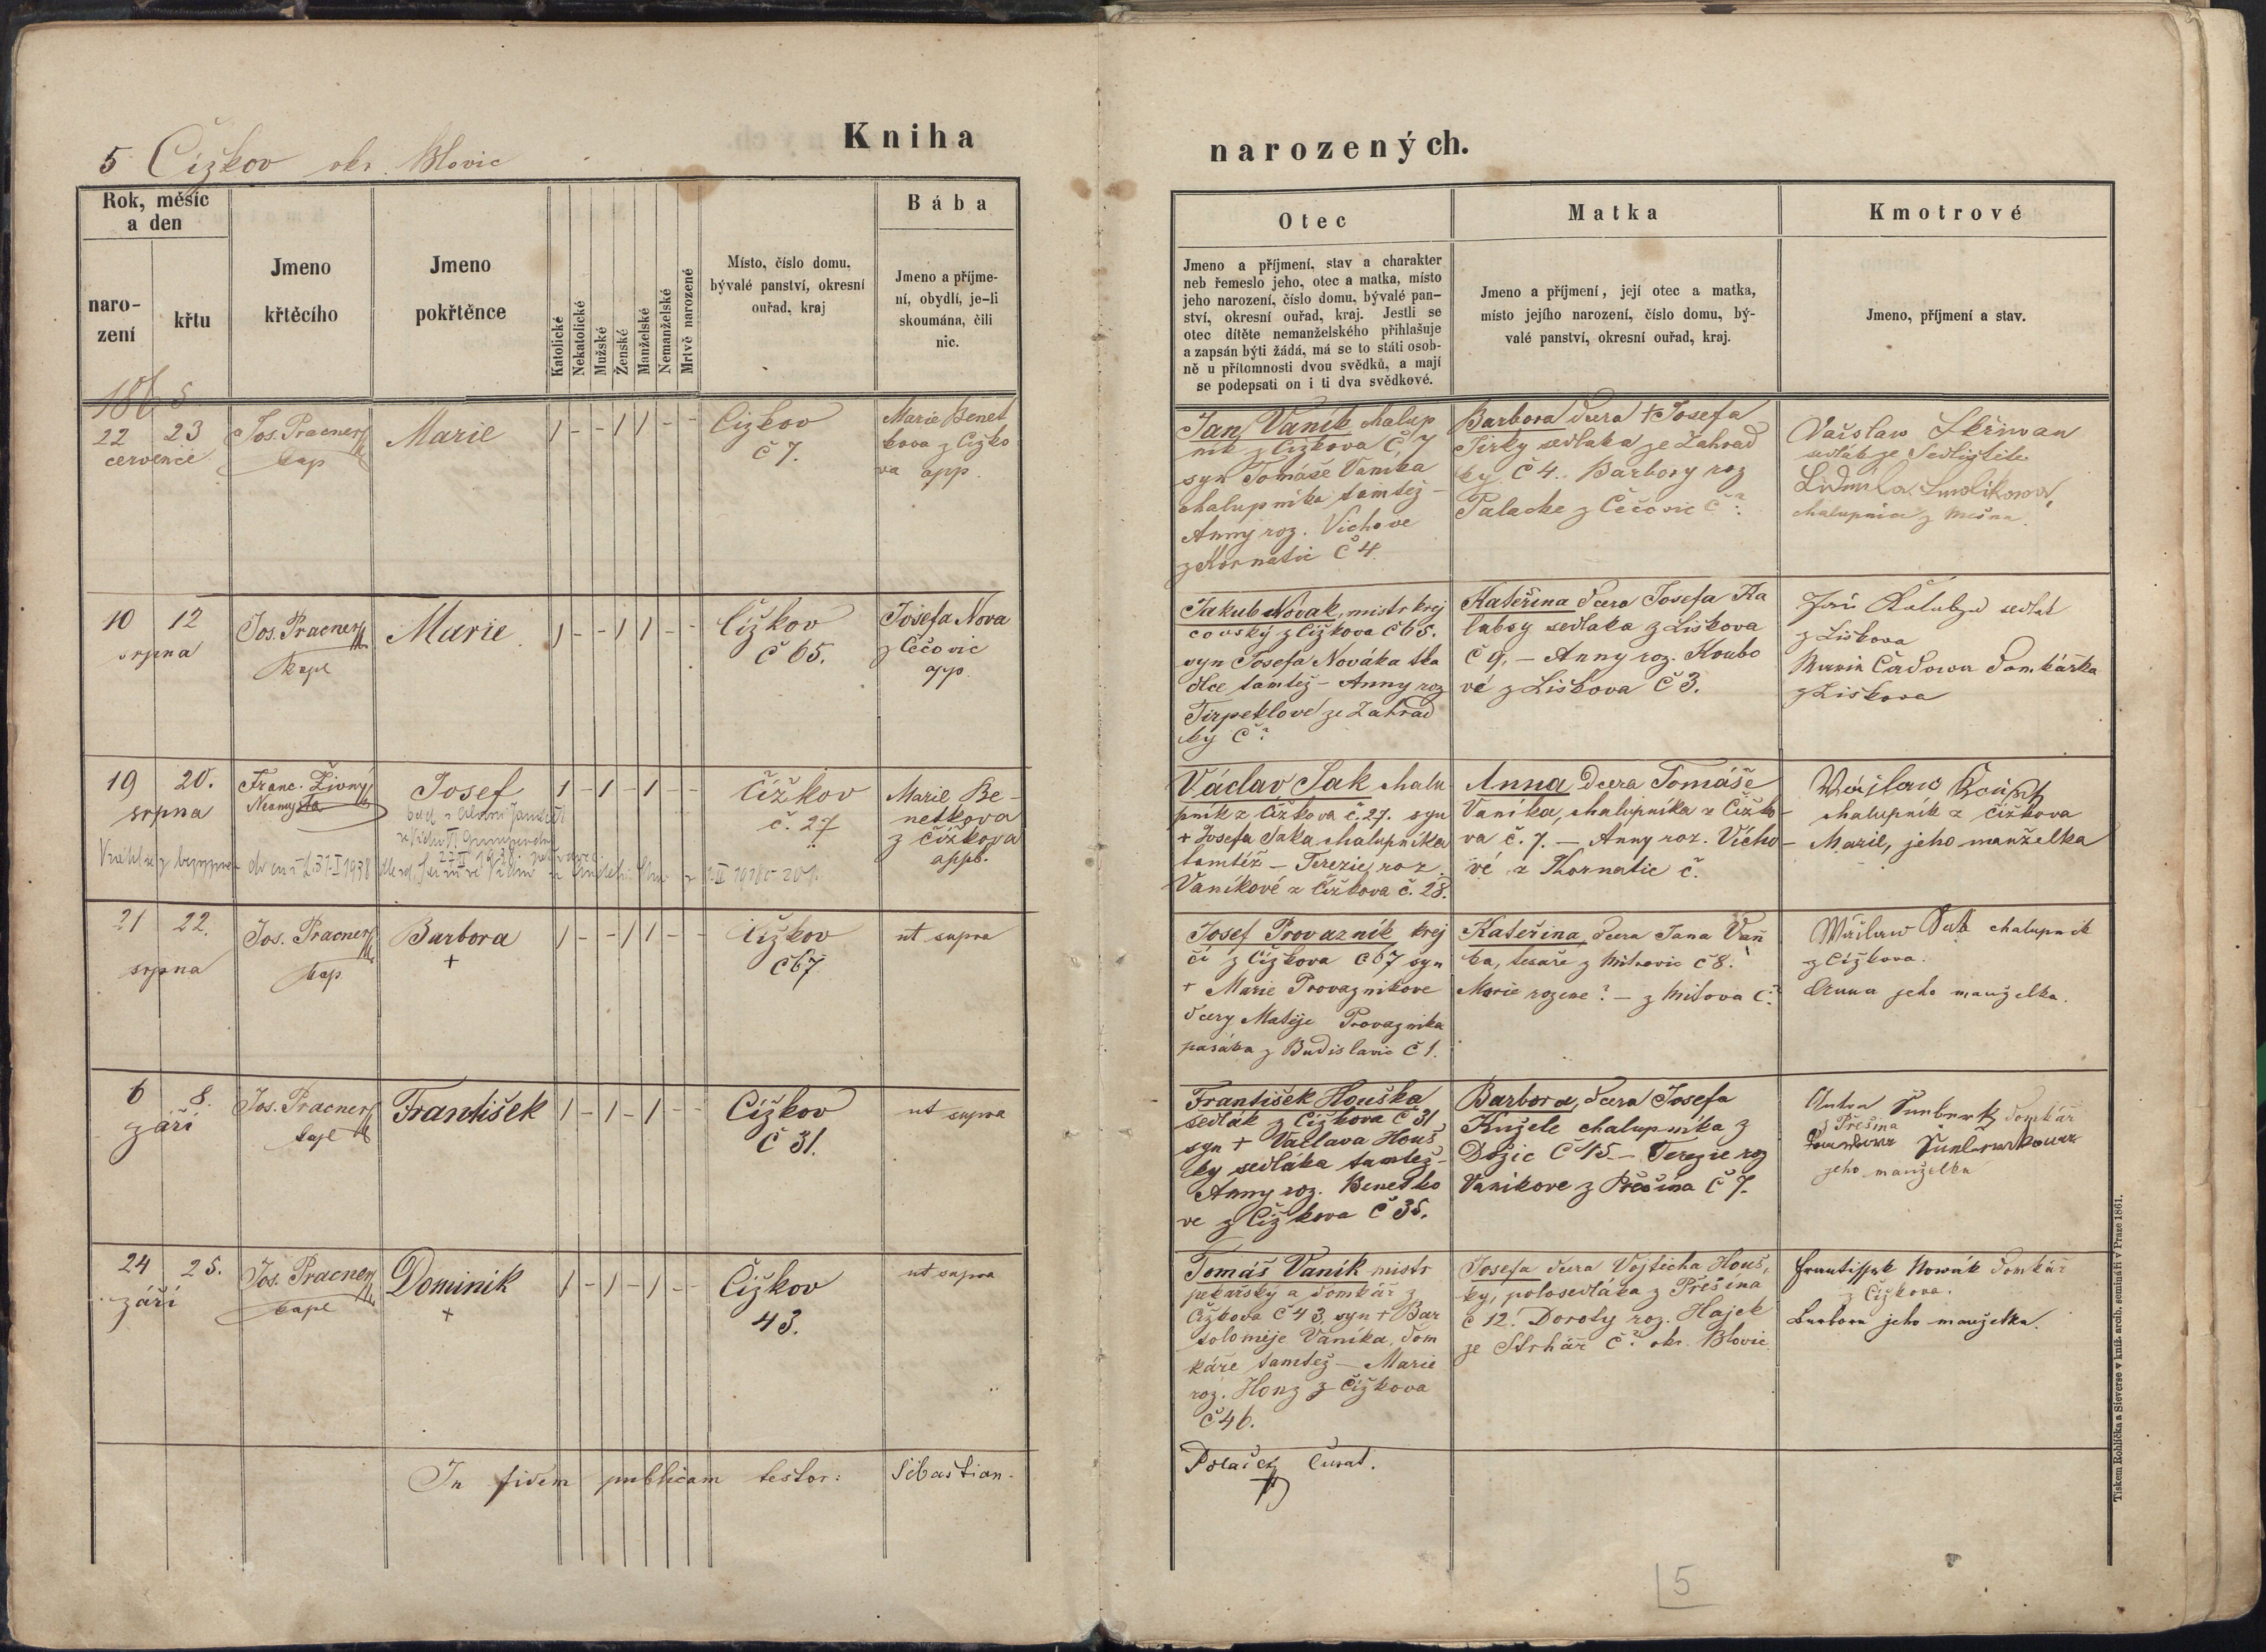 5 Čížkov okr. Blovic
Kniha
narozených.
Rok, měsíc
a den
naro-
zení
křtu
Jmeno
křtěcího
Jmeno
pokřtěnce
Katolické
Nekatolické
Mužské
Ženské
Manželské
Nemanželské
Mrtvě narozené
Místo, číslo domu,
bývalé panství, okresní
ouřad, kraj
Bába
Jmeno a příjme-
ní, obydlí, je-li
skoumána, čili
nic.
Otec
Jmeno a příjmení, stav a charakter
neb řemeslo jeho, otec a matka, místo
jeho narození, číslo domu, bývalé pan-
ství, okresní ouřad, kraj. Jestli se
otec dítěte nemanželského přihlašuje
a zapsán býti žádá, má se to státi osob-
ně u přítomnosti dvou svědků, a mají
se podepsati on i ti dva svědkové.
Matka
Jmeno a příjmení, její otec a matka,
místo jejího narození, číslo domu, bý-
valé panství, okresní ouřad, kraj.
Kmotrové
Jmeno, příjmení a stav.
1865
22 23
července
Jos. Pracner
kap
Marie
1 - - 1 1 - -
Čizkov
č 7.
Marie Benet
kova z Cižko
va app.
Jan Vaník chalup
ník z Cižkova Č, 7
syn Tomáše Vanika
chalupníka tamtéž -
Anny roz. Vichove
z Kornatic Č 4.
Barbora dcera + Josefa
Jirky sedlaka ze Zahrad
ky Č 4. Barbory roz
Palacke z Čečovic Č ?.
sedlák ze Sedliště
chalupnice z Mešna.
10 12
srpna
Jos. Pracner
kapl
Marie
1 - - 1 1 - -
Čížkov
č 65.
Josefa Nova
z Čečovic
app.
Jakub Novak, mistr krej
čovský z Čižkova Č 65.
syn Josefa Nováka tka
dlce tamtež - Anny roz
Tirpeklove ze Zahrad
ky Č ?
Kateřina dcera Josefa Ka
labzy sedlaka z Liškova
Č 9, - Anny roz. Koubo
vé z Liškova Č 3.
Jan Kalabza sedlák
z Liškova
Marie Čadowa domkářka
z Liskova
19 20.
srpna
Franc. Živný
Josef
1 - 1 - 1 - -
Čížkov
č. 27
Marie Be-
netkova
z Čížkova
app.
Václav Jak chalu
pník z Čížkova č. 27. syn
+ Josefa Jaka chalupníka
tamtéž - Terezie roz.
Vaníkové z Čížkova č. 28.
Anna dcera Tomáše
Vaníka, chalupníka z Čížko-
va č. 7. - Anny roz. Vícho-
vé z Kornatic č.
chalupník z Čížkova
Marie, jeho manželka
21 22.
srpna
Jos. Pracner
kap.
Barbora
+
1 - - 1 1 - -
Čižkov
č 67
ut supra
Josef Provazník krej
čí z Čížkova č 67 syn
+ Marie Provaznikove
dcery Matěje Provaznika
pasáka z Budislavic Č 1.
Kateřina, dcera Jana Vaň
ka, tesaře z Mitrovic č 8.
Marie rozene ? - z Mitova Č ?
Wáclaw Jak chalupník
z Čížkova.
Anna jeho manželka.
6 8.
září
Jos. Pracner
kapl
František
1 - 1 - 1 - -
Čížkov
č 31.
ut supra
František Houška
sedlák z Čižkova č 31
syn + Vaclava Houš
ky sedláka tamtež -
Anny roz. Benetko
ve z Čižkova Č 35.
Barbora, dcera Josefa
Kužele chalupníka z
Dožic Č 15. - Terezie roz
Vanikove z Přešina Č 7.
domkář
z Přešina
jeho manželka
24 25.
září
Jos. Pracner
kapl
Dominik
+
1 - 1 - 1 - -
Čížkov
43.
ut supra
Tomáš Vaník mistr
pekařský a domkář z
Čížkova č 43. syn + Bar
toloměje Vaníka, dom
káře tamtež - Marie
roz. Honz z Čížkova
Č 46.
Josefa dcera Vojtěcha Houš,
ky, polosedláka z Přešina
č 12. Doroty roz. Hajek
ze Strhář č ? okr. Blovic.
Frantissek Nowák domkář
z Čížkova.
Barbora jeho manželka.
In fidem publicam testor: Sebastian.
Polaček Curat.
Tiskem Rohlíčka a Sieverse v kníž. arcib. semináři v Praze 1861.
5